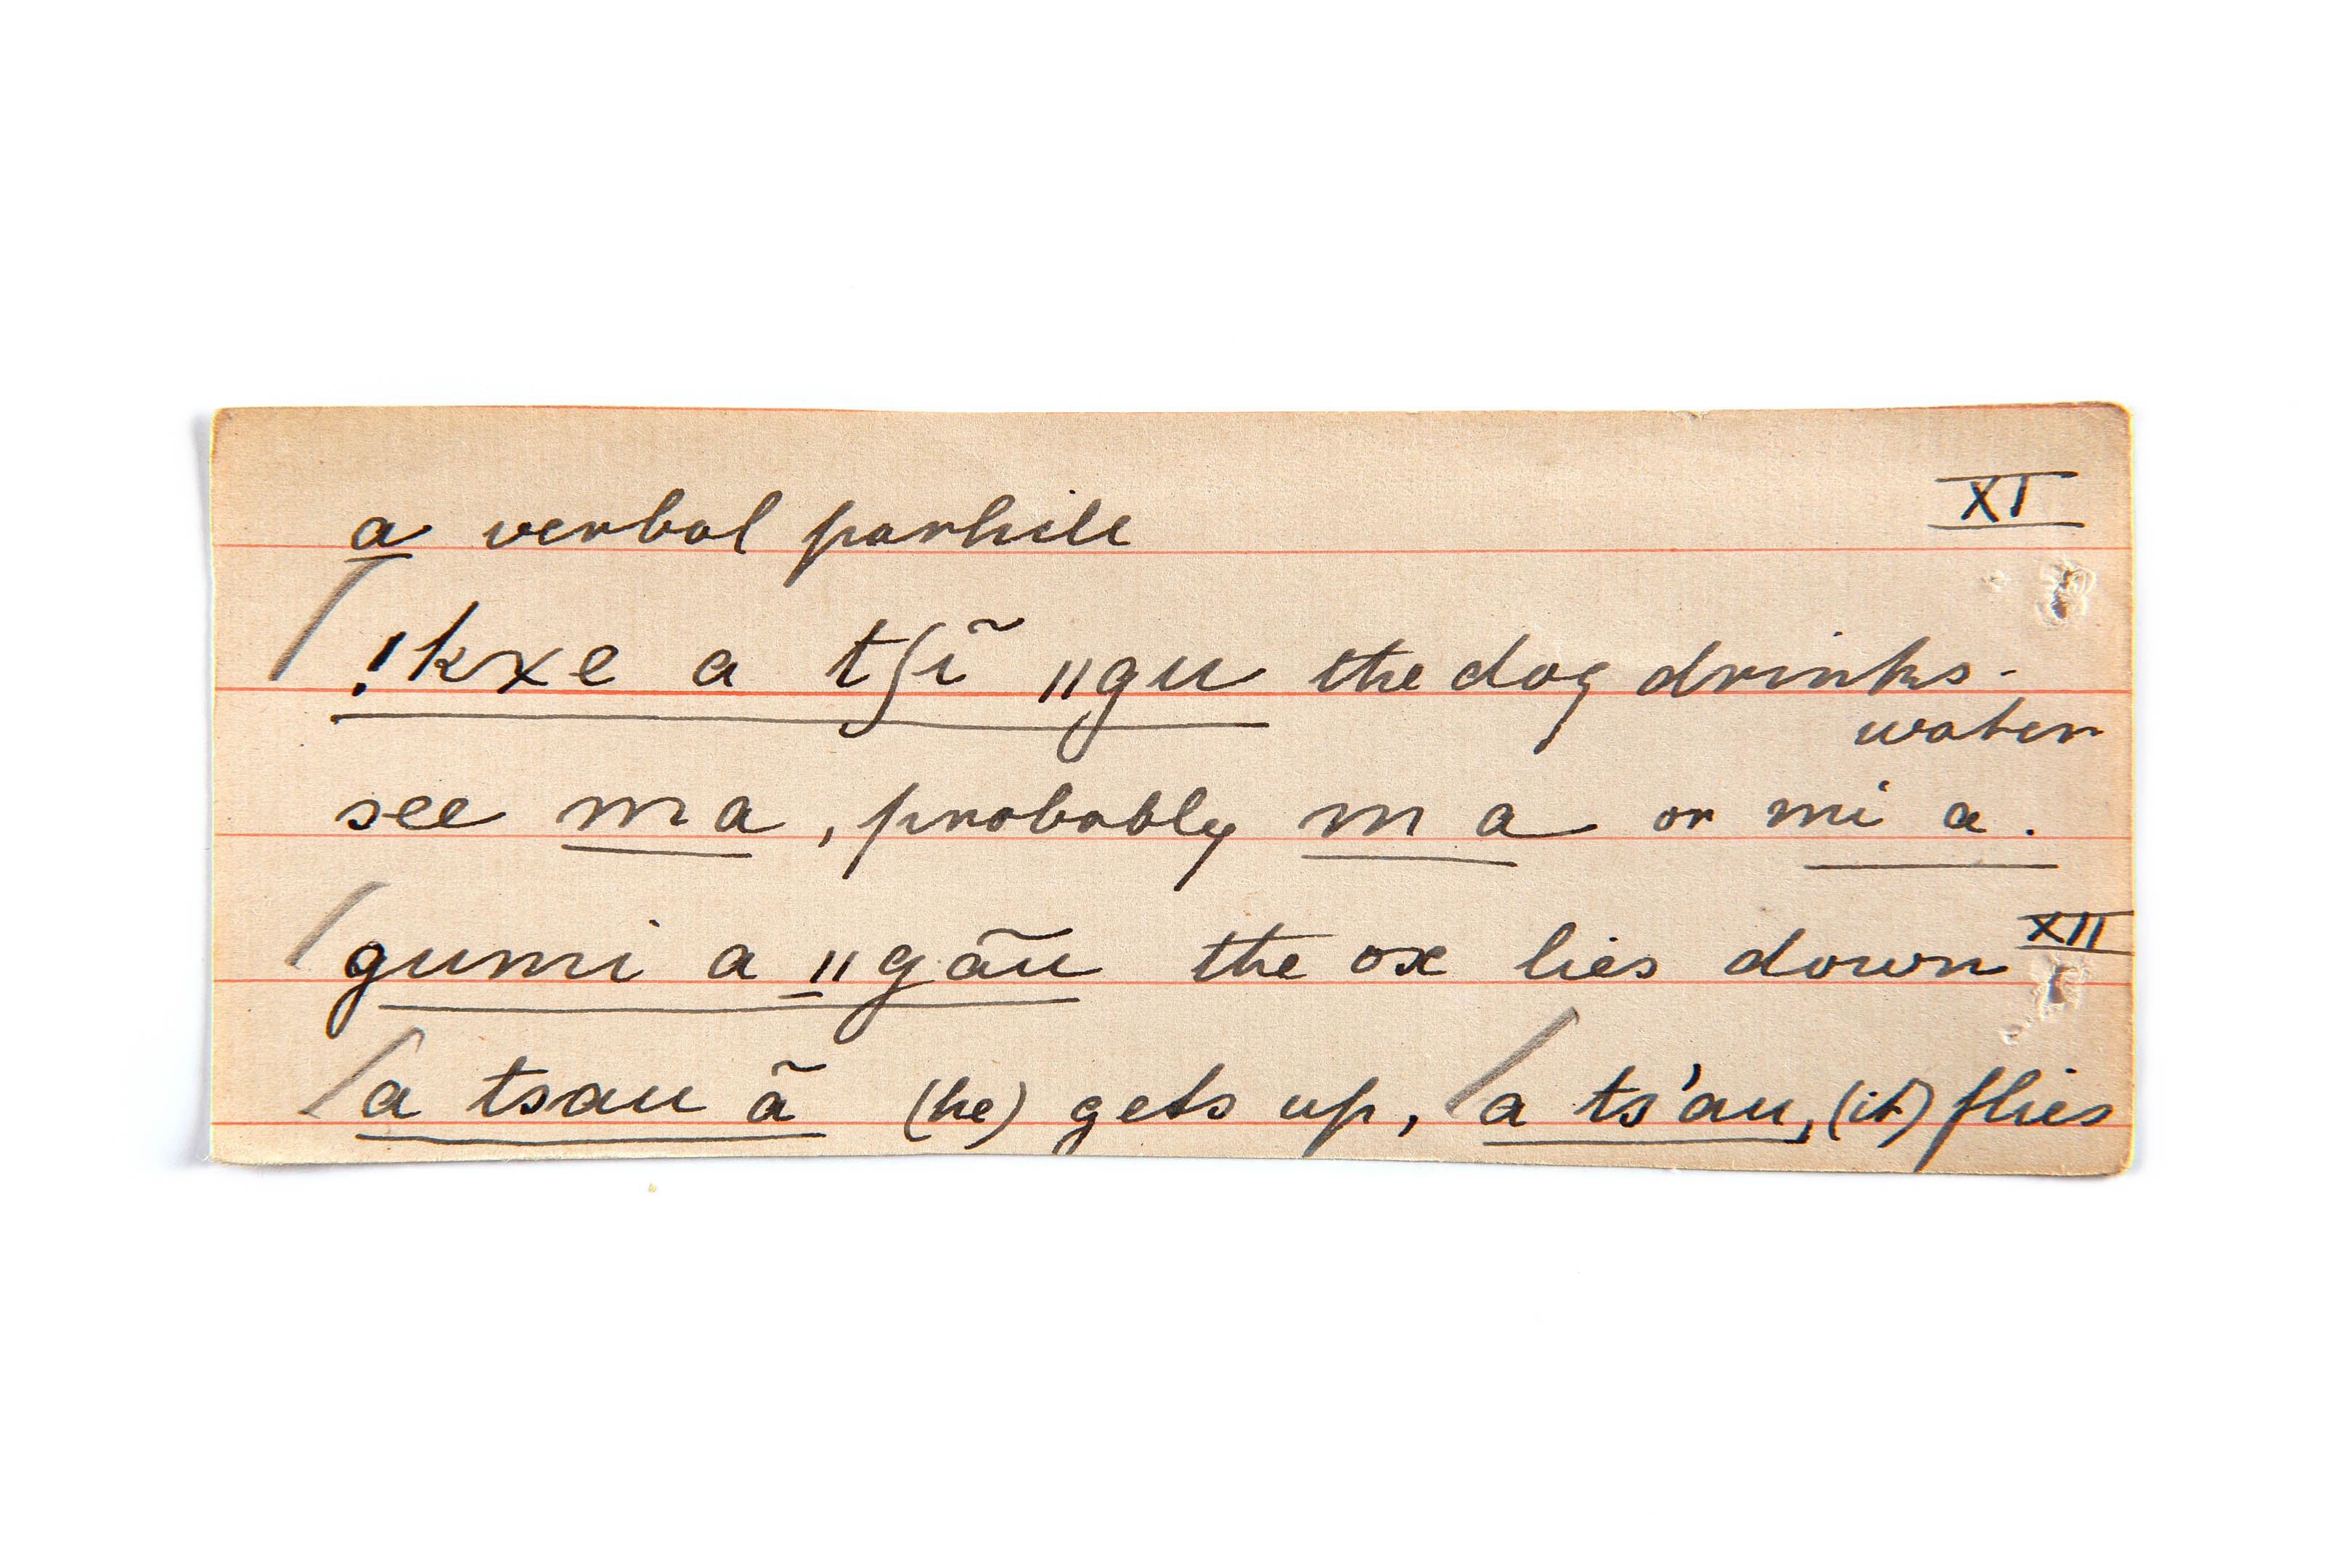 a verbal particle XI
!kxe a tʃĩ ǁgu the dog drinks-
water
see ma, probably m a or mi a.
gumi a ǁgãũ the ox lies down XII
a tsau ã (he) gets up, a ts'au, (it) flies